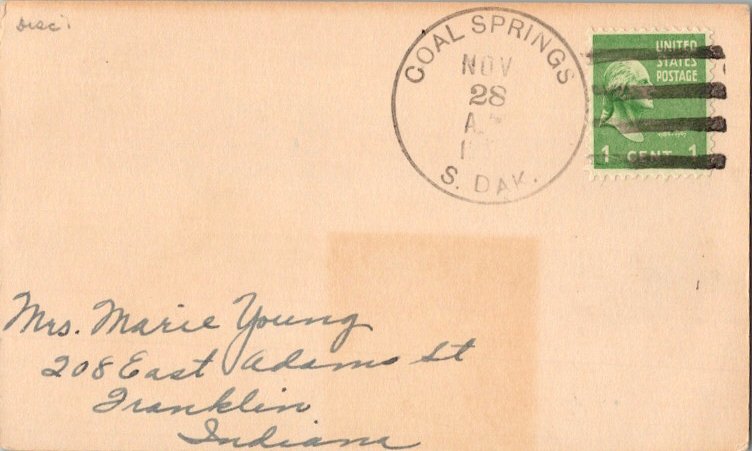 Disc
COAL SPRINGS
NOV
28
S. DAK.
UNITED
STATES
POSTAGE
1 CENT 1
Mrs. Marie Young
208 East Adams St
Franklin
Indiana